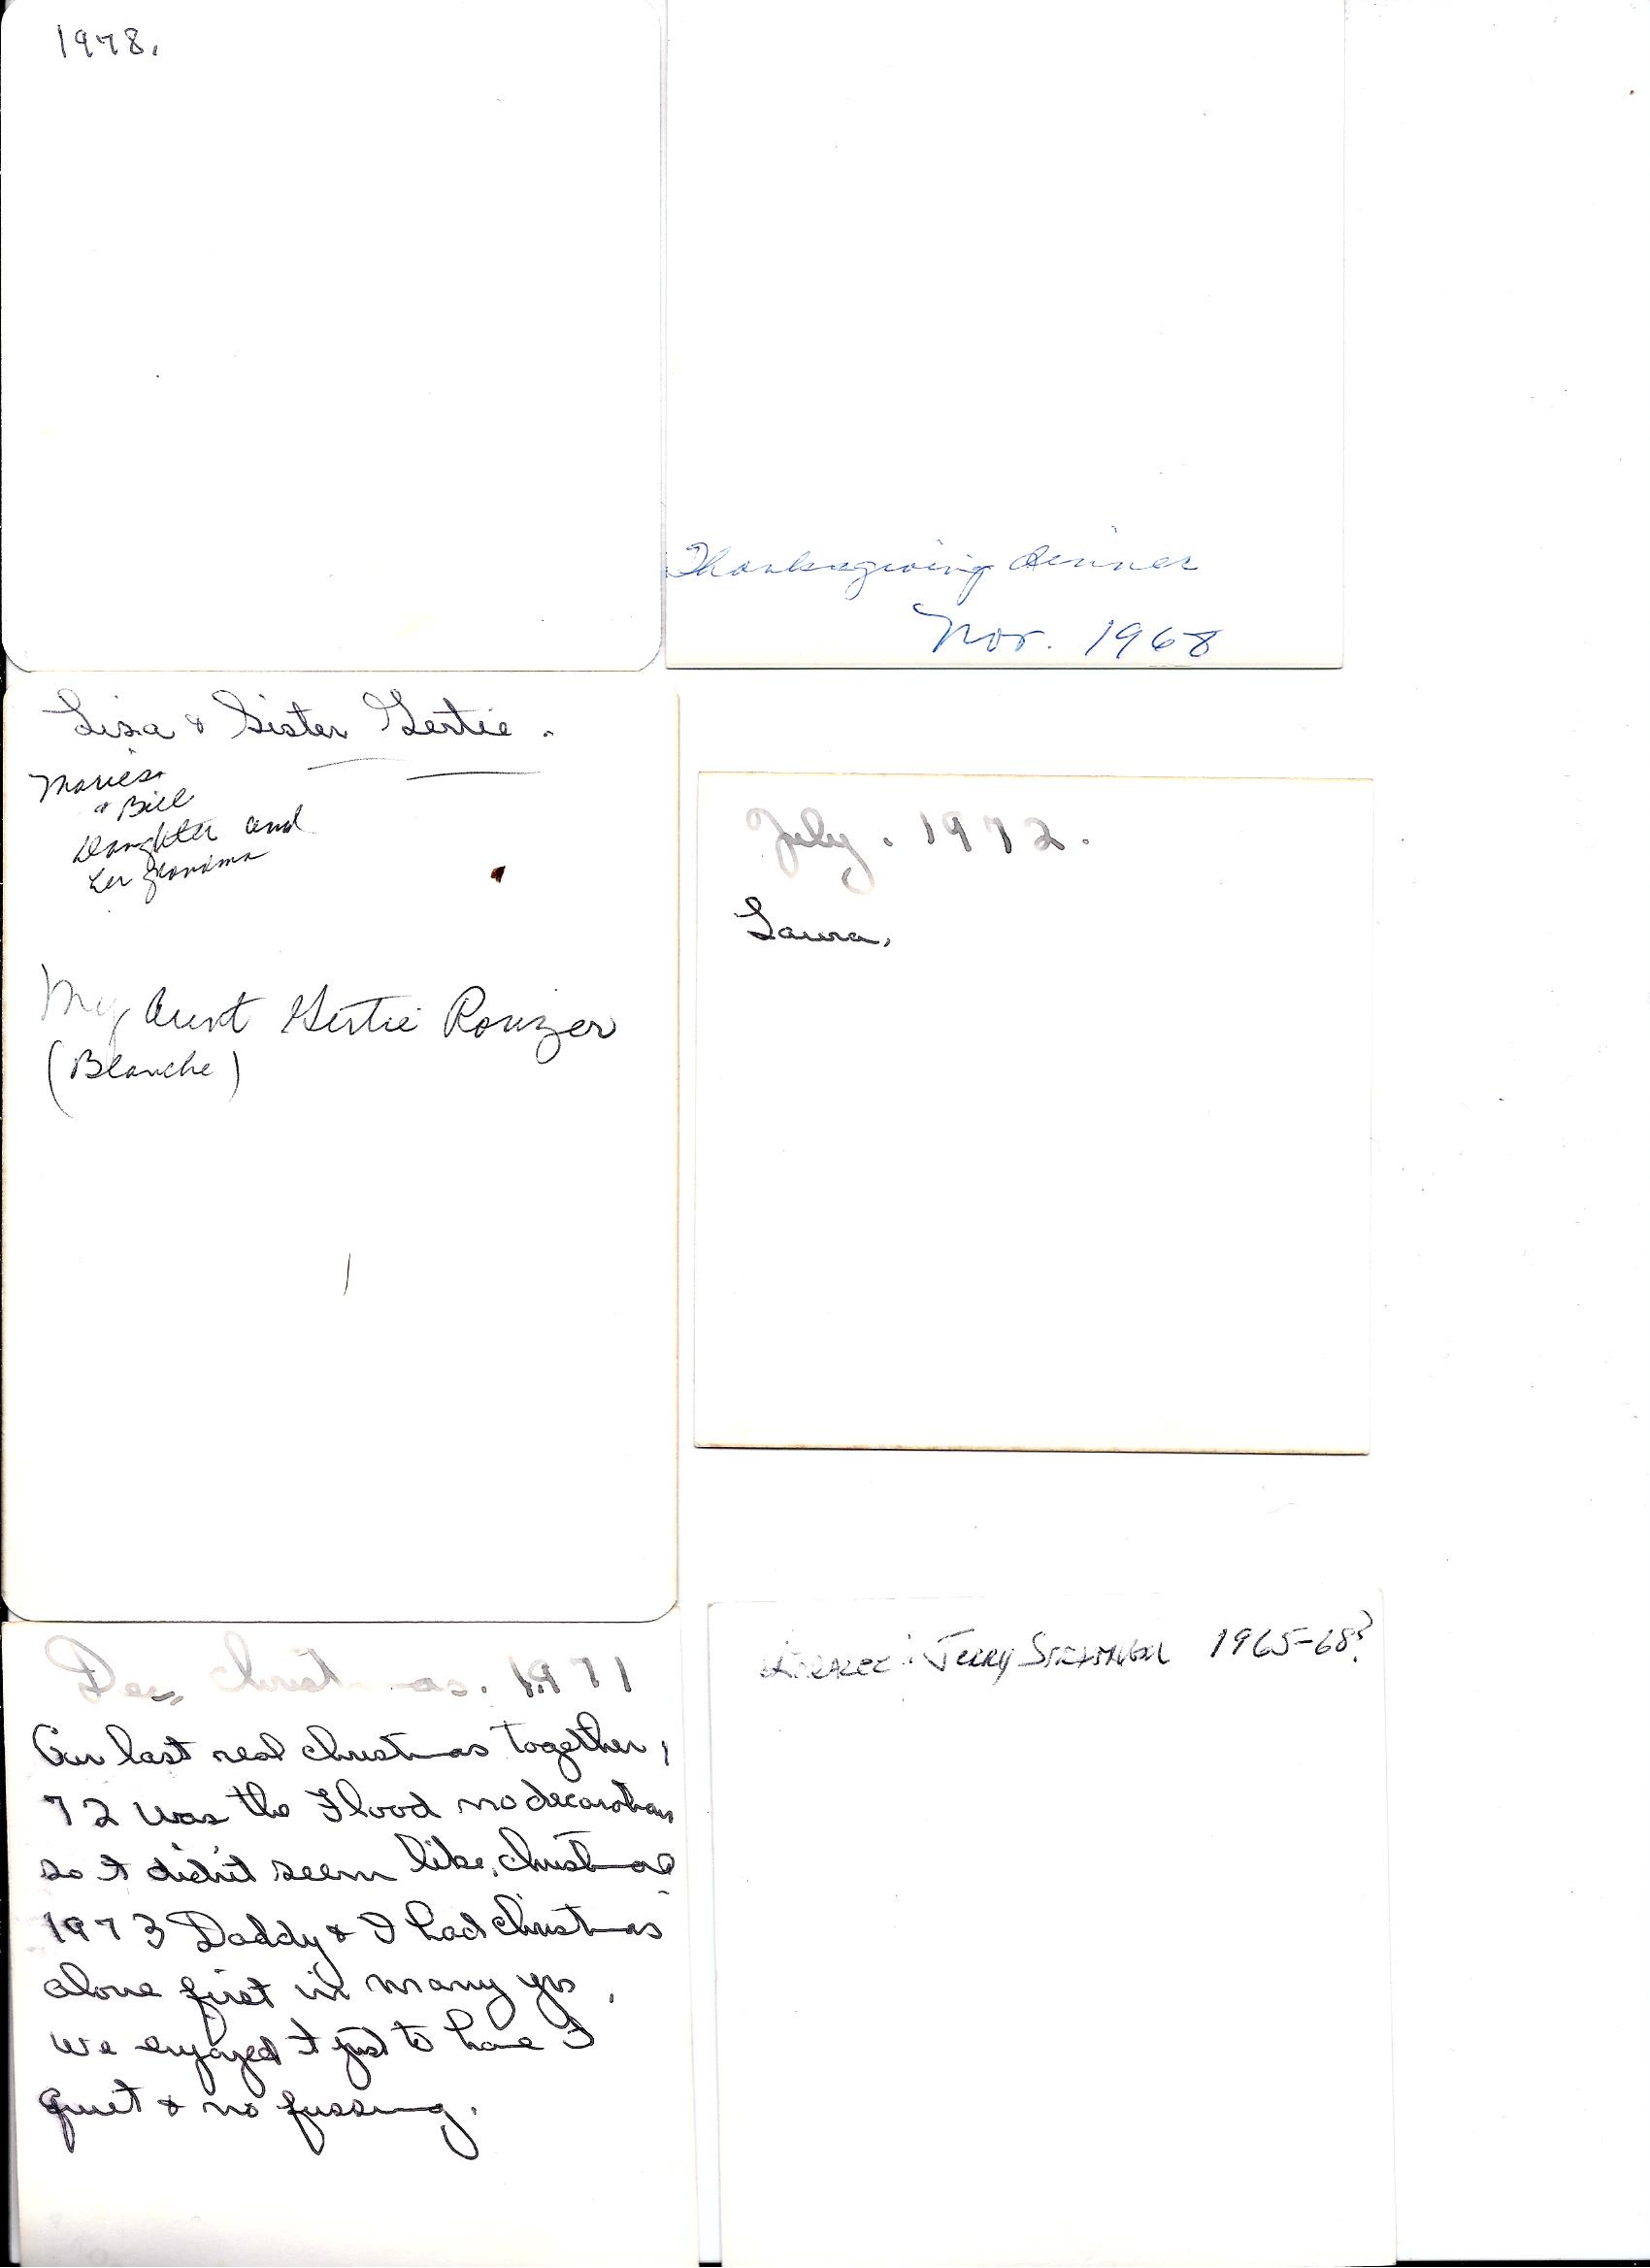 1978.
Thanksgiving dinner
Nov. 1968
Lisa & Sister Gertie.
Maries
& Bill
Daughter and
her grandma
My Aunt Gertie Rouzer
(Blanche)
July. 1972.
Laura,
Dec, Christmas. 1971
Our last real christmas together,
72 was the Flood no decorations
so it didn't seem like, christmas
1973 Daddy & I had christmas
alone first in many yrs,
we enjoyed it just to have I
quiet & no fussing.
Jerry 1965-68?